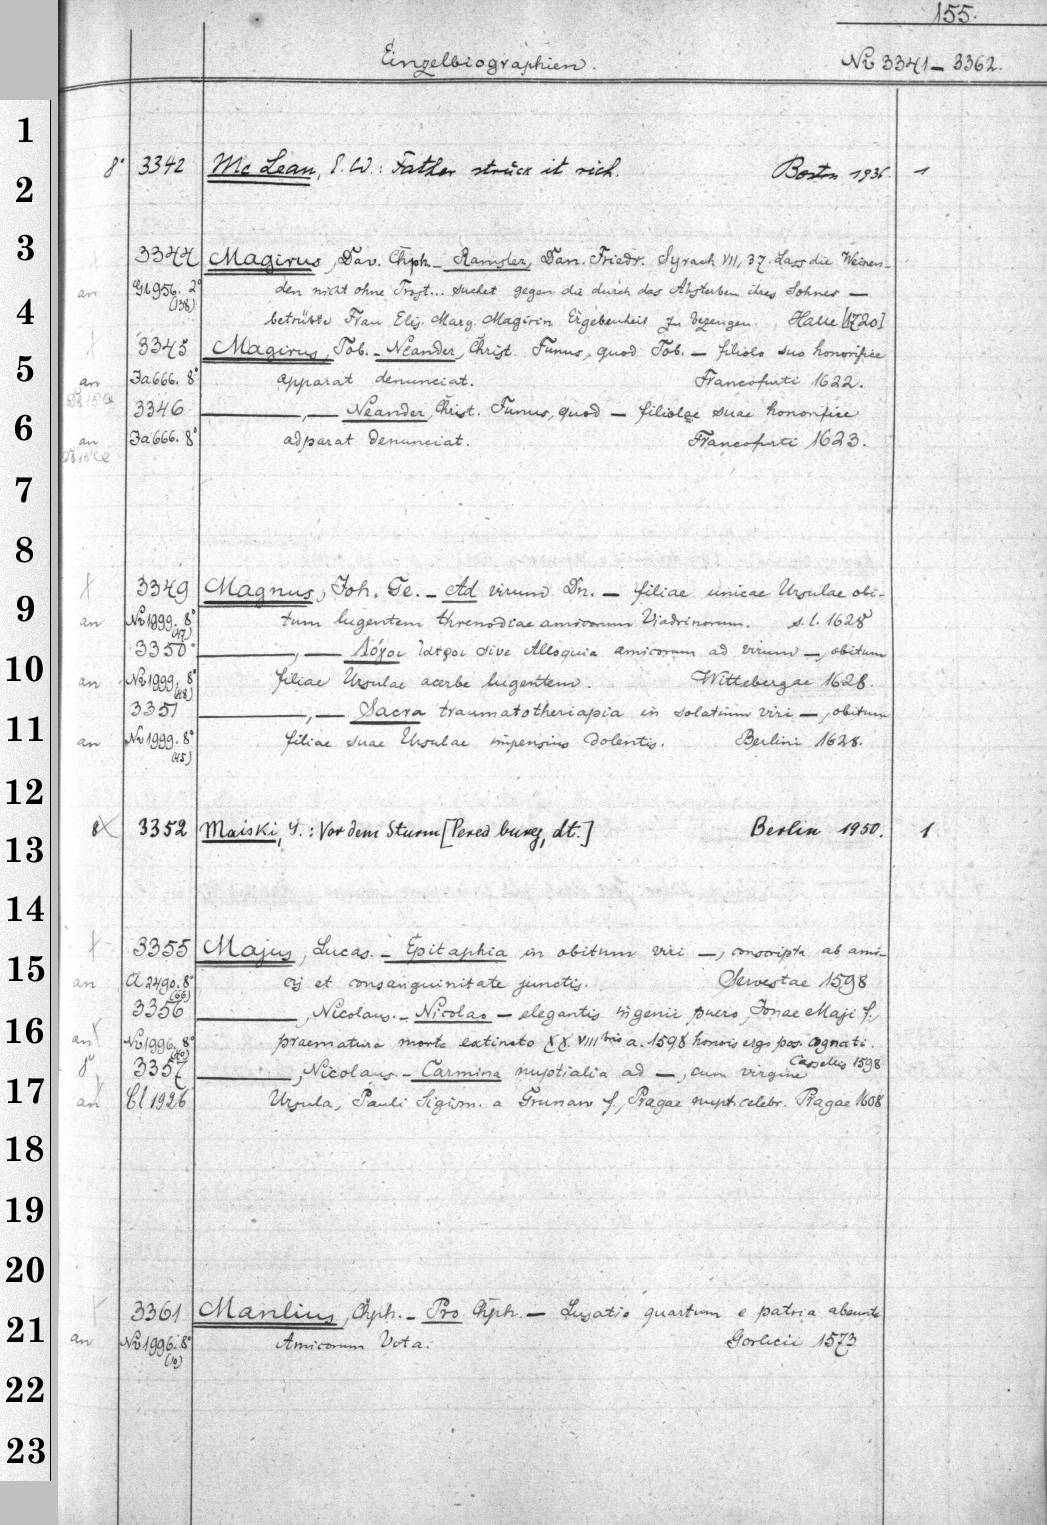 155.
Einzelbiographien. № 3341–3362.
1
8° 3342 Mc Lean, E. W.: Father struck it rich. Boston 1936 1
2
3
3344 Magirus, Dav. Chph. – Ramsler, Dan. Friedr. Syrach VII, 37. Lass die Weinen-
an Gl 956. 2° den nicht ohne Trost... suchet gegen die durch das Absterben ihres Sohnes —
(138)
4
betrübte Frau Elis. Marg. Magirin Ergebenheit zu bezeugen. Halle [1720]
3345 Magirus, Tob. – Neander, Christ. Funus, quod Tob. — filiolo suo honorifice
5
an Ja 666. 8° apparat denunciat. Francofurti 1622.
3346 ———, — Neander, Christ. Funus, quod — filiolae suae honorifice
6
an Ja 666. 8° adparat denunciat. Francofurti 1623.
7
8
3349 Magnus, Joh. Ge. – Ad virum Dn. — filiae unicae Ursulae obi-
9
an № 1999. 8° tum lugentem threnodiae amicorum Viadrinorum. s. l. 1628
(47)
3350 ———, — Λόγοι ἰατροι sive Alloquia amicorum ad virum —, obitum
10
an № 1999. 8° filiae Ursulae acerbe lugentem. Wittebergae 1628.
(48)
3351 ———, — Sacra traumatotheriapia in solatium viri —, obitum
11
an № 1999. 8° filiae suae Ursulae impensius dolentis. Berlini 1628.
(45)
12
8° 3352 Maiski, I.: Vor dem Sturm [Pered burej, dt.] Berlin 1950. 1
13
14
3355 Majus, Lucas. – Epitaphia in obitum viri —, conscripta ab ami-
15
an A 2490. 8° cis et consanguinitate junctis. Servestae 1598
(66)
3356 ———, Nicolaus. – Nicolao — elegantis ingenii puero, Jonae Maji f.,
16
an № 1996. 8° praematura morte extincto XXVIII bris a. 1598 honoris ergo pos. cognati.
Cassellis 1598
8° 3357 ———, Nicolaus – Carmina nuptialia ad —, cum virgine
17
an Cl 1926 Ursula, Pauli Sigism. a Grunaw f., Pragae nupt. celebr. Pragae 1608
18
19
20
3361 Manlius, Chph. – Pro Chph. — Lusatio quartum e patria absente
21
an № 1996. 8° Amicorum Vota. Gorlicii 1573
(10)
22
23